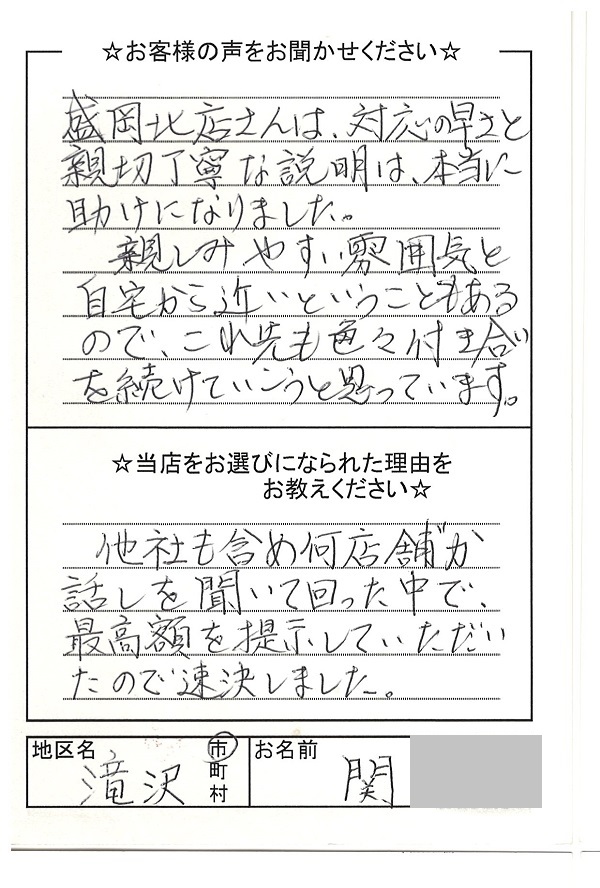 ☆お客様の声をお聞かせください☆
盛岡北店さんは、対応の早さと
親切丁寧な説明は、本当に
助けになりました。
親しみやすい雰囲気と
自宅から近いということもある
ので、これ先も色々付き合い
を続けていこうと思っています。
☆当店をお選びになられた理由を
お教えください☆
他社も含め何店舗か
話しを聞いて回った中で、
最高額を提示していただい
たので速決しました。
地区名 滝沢 市
町
村
お名前 関